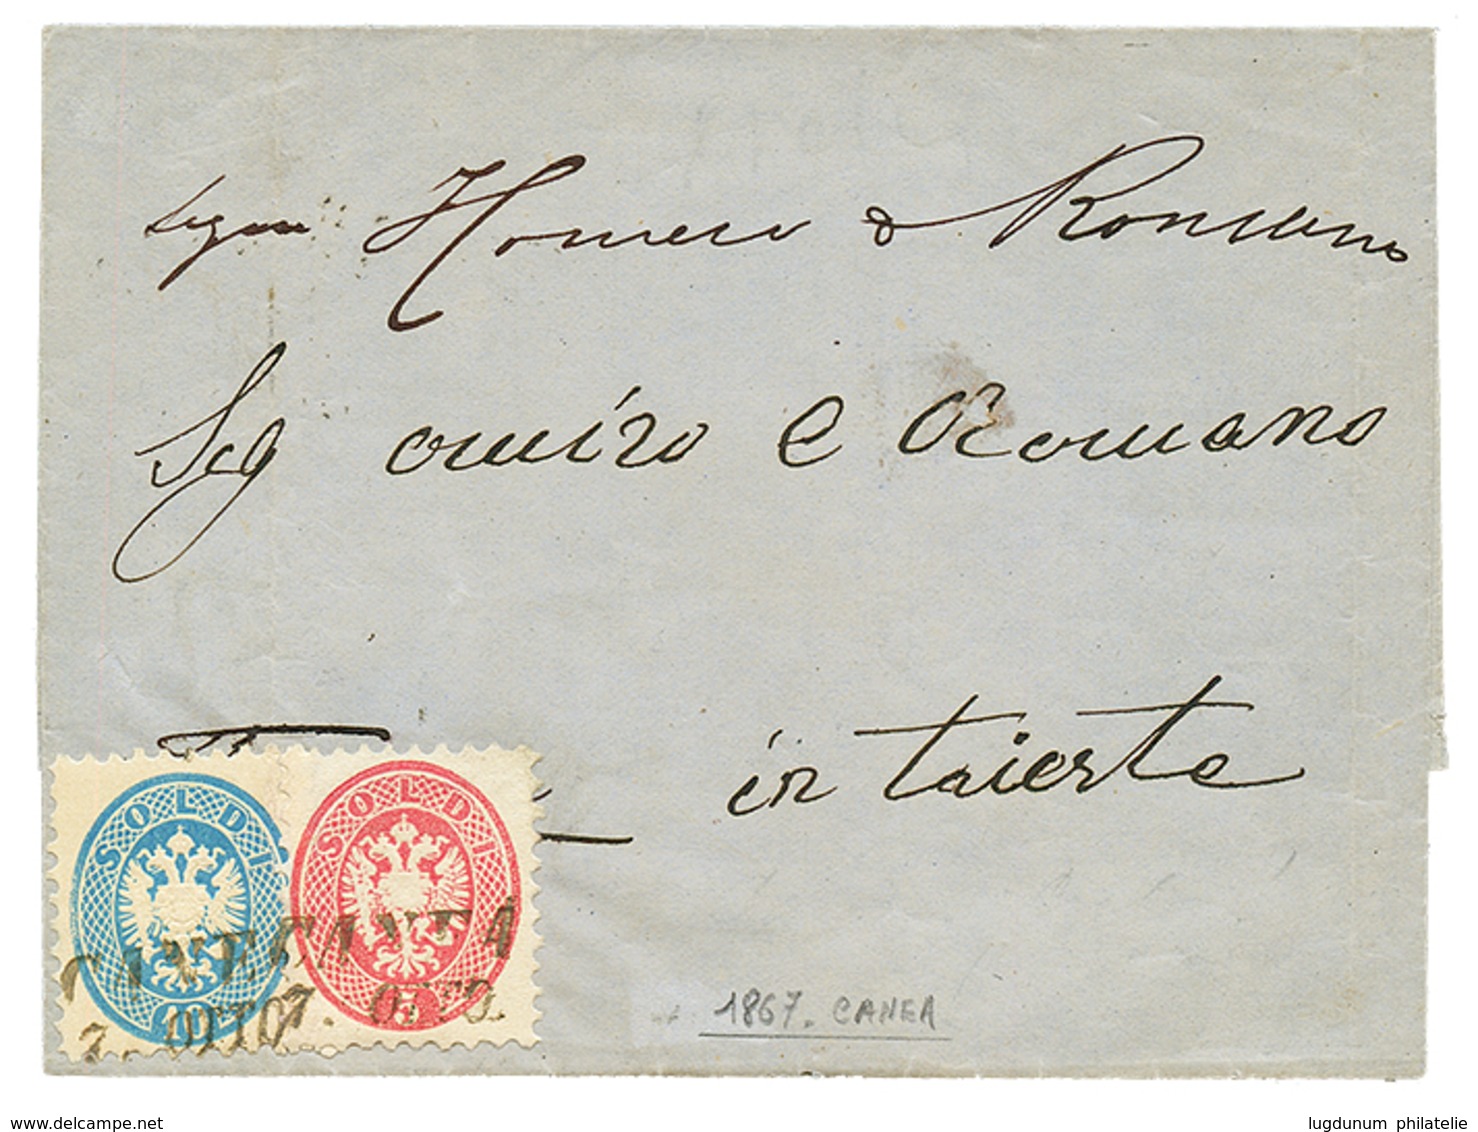 Homero & Romano
Sig omiro e Romano
in trieste
SOLDI SOLDI
CANE CANEA
7. OTTO 7. OTTO.
10 5
1867. CANEA
www.delcampe.net
lugdunum philatelie